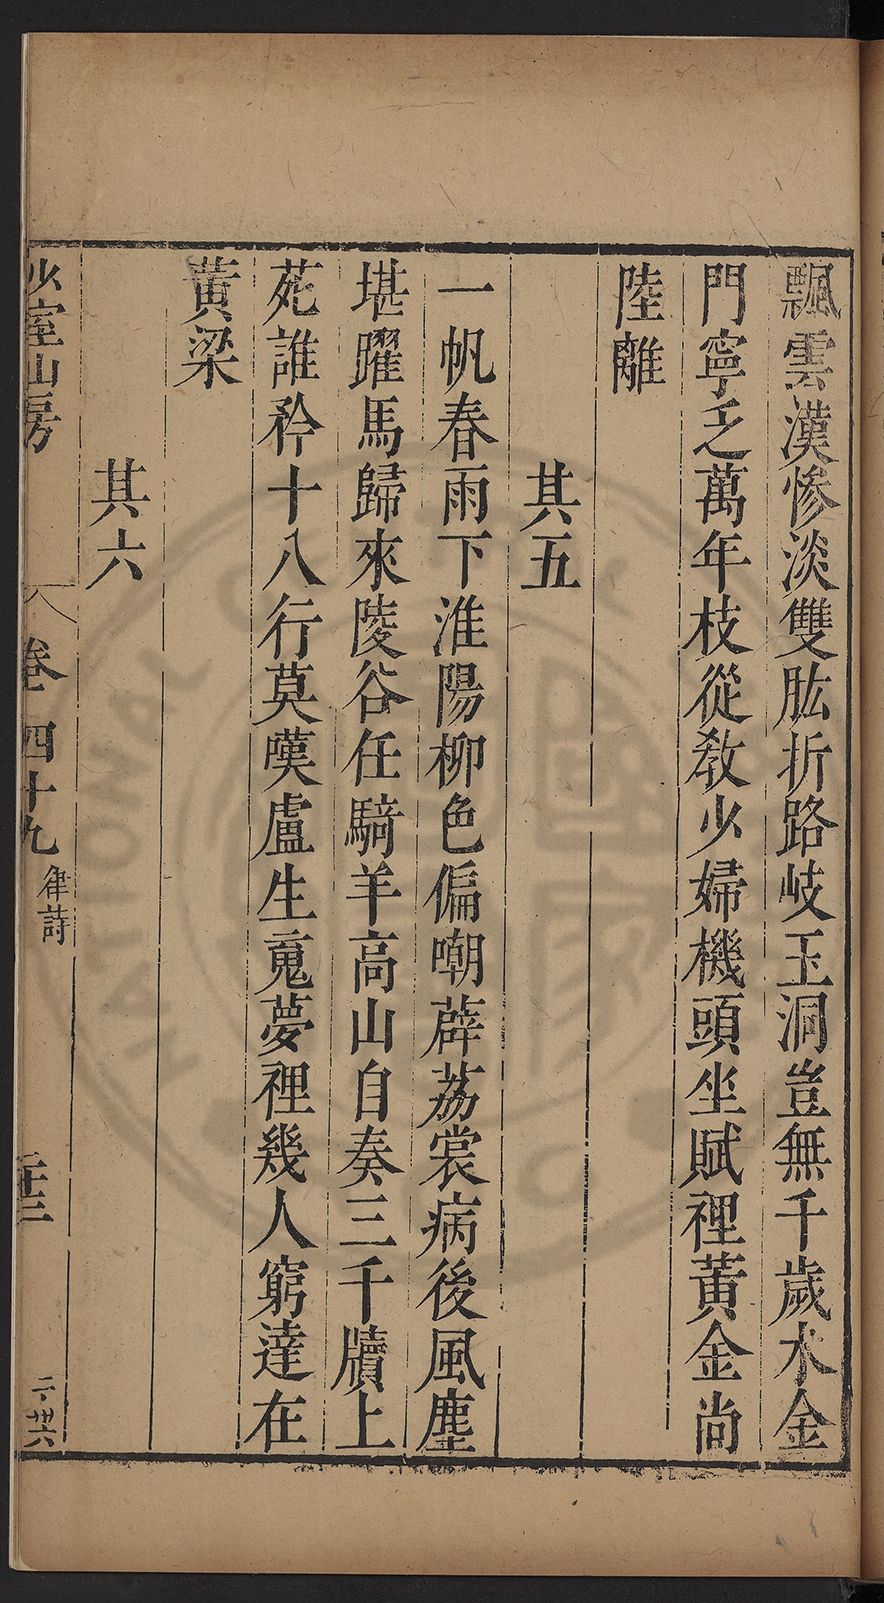 飄雲漢慘淡雙肱折路岐玉洞豈無千歲水金
門寧乏萬年枝從教少婦機頭坐賦裡黃金尚
陸離
其五
一帆春雨下淮陽柳色偏嘲薜荔裳病後風塵
堪躍馬歸來陵谷任騎羊高山自奏三千牘上
苑誰矜十八行莫嘆盧生䰟夢裡幾人窮達在
黃梁
其六
少室山房
卷四十九 律詩
二 廿六
NATIONAL